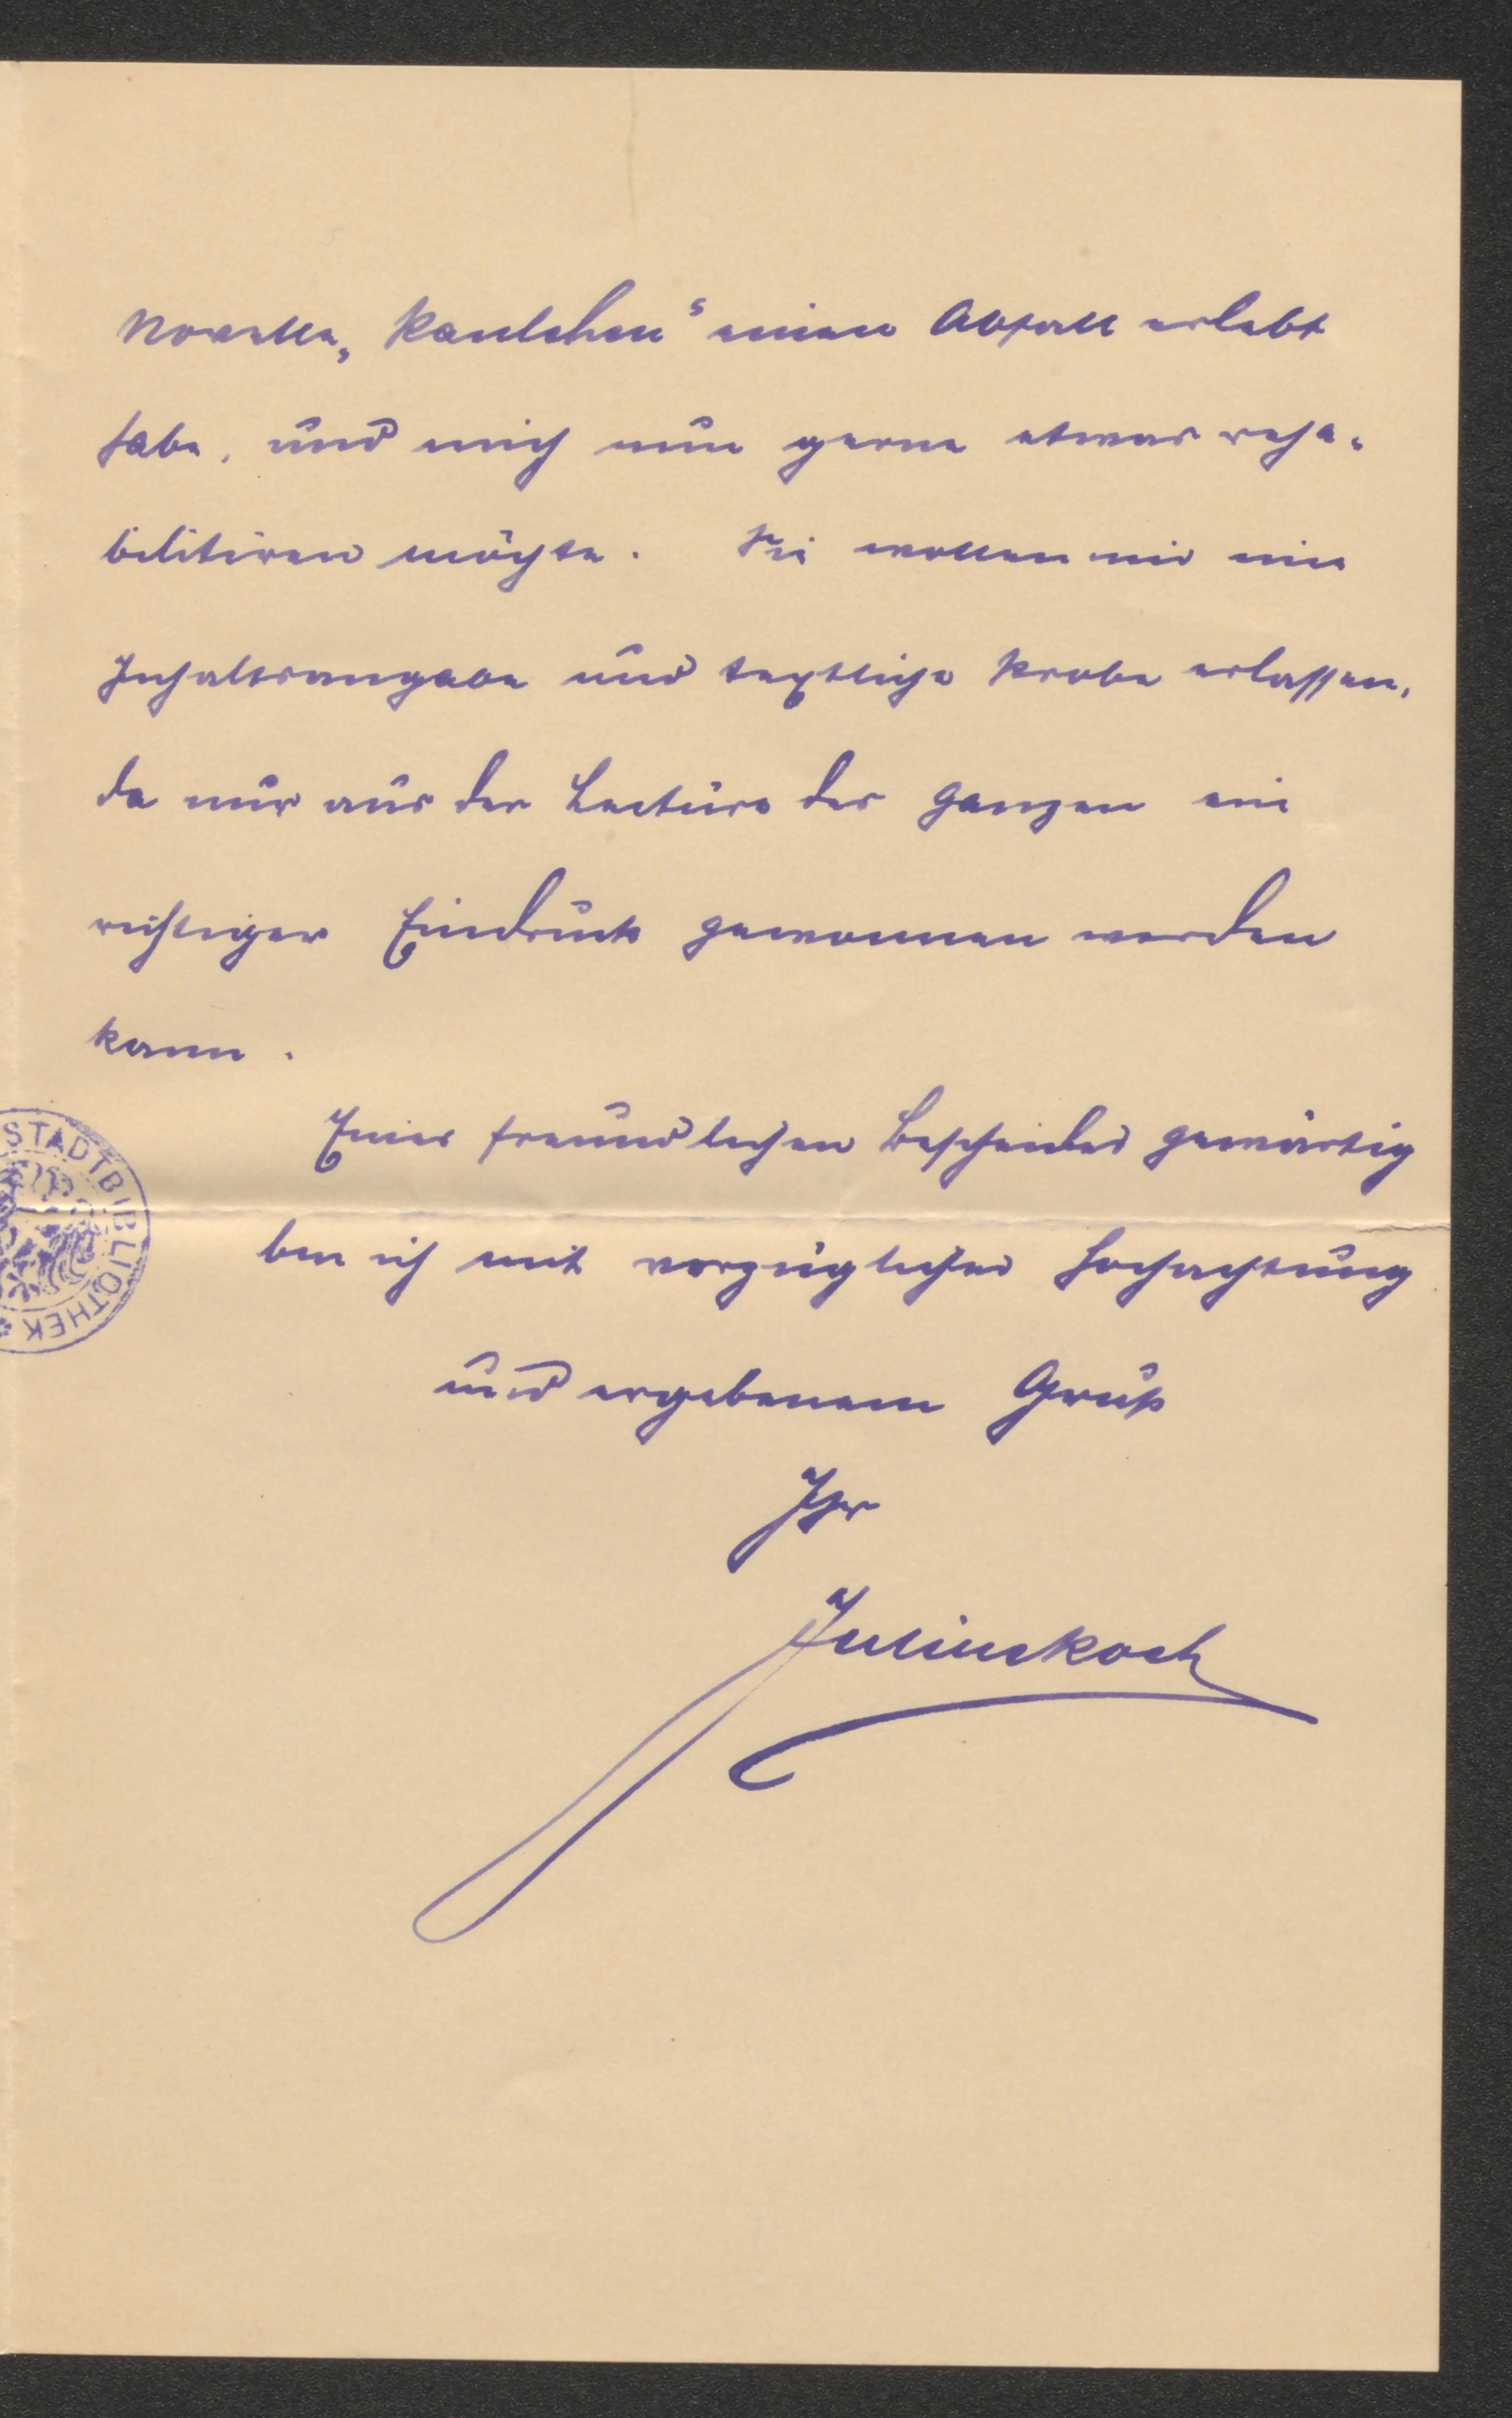 Novelle „Paulchen“ einen Abfall erlebt
habe, und mich nun gerne etwas reha-
bilitiren möchte. Sie wollen mir eine
Inhaltsangabe und textliche Probe erlassen,
da nur aus der Lectüre des Ganzen ein
richtiger Eindruck gewonnen werden
kann.
Eines freundlichen Bescheides gewärtig
bin ich mit vorzüglicher Hochachtung
und ergebenem Gruß
Ihr
Julius Koch
STADTBIBLIOTHEK